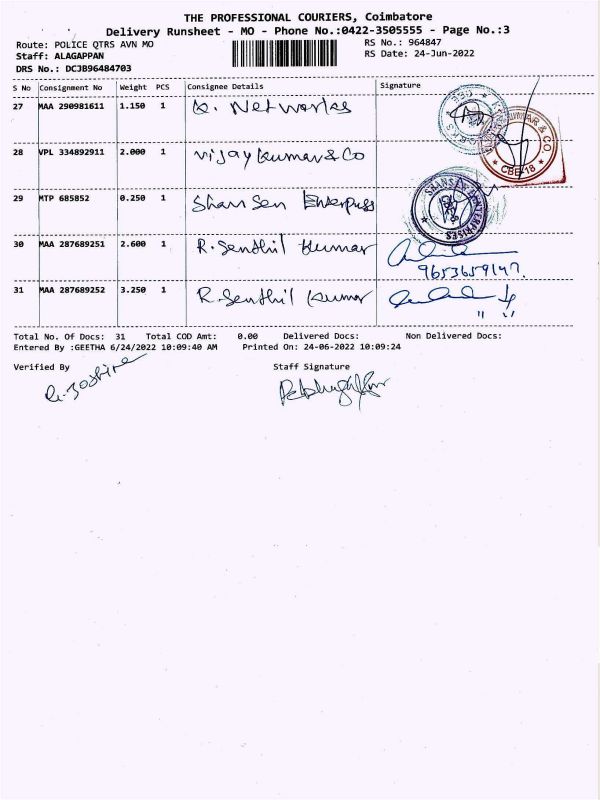 THE PROFESSIONAL COURIERS, Coimbatore
Delivery Runsheet - MO - Phone No.:0422-3505555 - Page No.:3
Route: POLICE QTRS AVN MO
RS No.: 964847
Staff: ALAGAPPAN
RS Date: 24-Jun-2022
DRS No.: DCJB96484703
S No Consignment No Weight PCS Consignee Details Signature
27 MAA 290981611 1.150 1 Q. Networks
28 VPL 334892911 2.000 1 Vijay Kumar & Co
CBE-18
29 MTP 685852 0.250 1 Shan Sen Enterprises
SHANSEN ENTERPRISES
30 MAA 287689251 2.600 1 R. Senthil Kumar
9653659147.
31 MAA 287689252 3.250 1 R. Senthil Kumar
Total No. Of Docs: 31 Total COD Amt: 0.00 Delivered Docs: Non Delivered Docs:
Entered By :GEETHA 6/24/2022 10:09:40 AM Printed On: 24-06-2022 10:09:24
Verified By Staff Signature